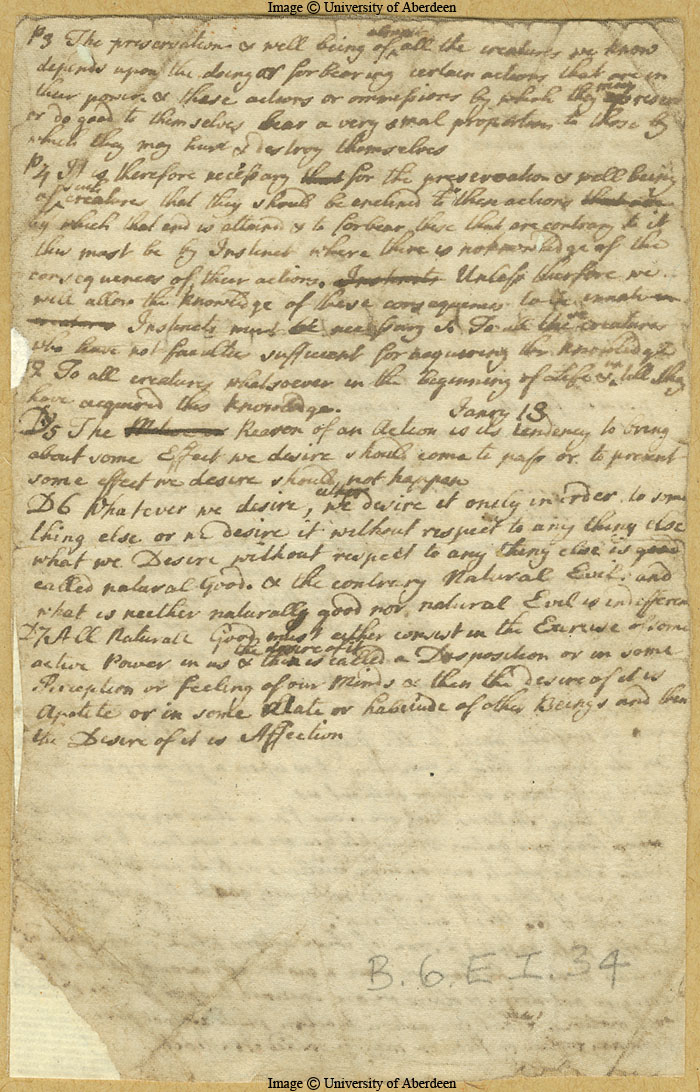 Image © University of Aberdeen
P3 The preservation & well being of almost all the creatures we know
depends upon the doing or forbearing certain actions that are in
their power & these actions or ommissions by which they may preserve
or do good to themselves bear a very smal proportion to those by
which they may hurt & destroy themselves
P4 It is therefore necessary that for the preservation & well being
of such creatures that they should be enclined to these actions that are
by which that end is attained & to forbear these that are contrary to it
this must be by Instinct where there is no knowledge of the
consequences of their actions. Instincts Unless therefore we
will allow the knowledge of these consequences to be innate
Instincts must be necessary 1o To all the creatures
who have not faculties sufficient for acquiring this knowledge
2 To all creatures whatsoever in the beginning of Life & till they
have acquired this knowledge. Janry 13
D5 The Reason of an Action is its tendency to bring
about some Effect we desire should come to pass or to prevent
some effect we desire should not happen
D6 Whatever we desire, we either desire it onely in order to some
thing else or we desire it without respect to any thing else
what we Desire without respect to any thing else is good
called natural Good. & the contrary Natural Evil. and
what is neither naturally good nor natural Evil is indifferent
D7 All Naturall Good must either consist in the Exercise of some
active Power in us & then the desire of it is called a Disposition or in some
Perception or feeling of our Minds & then the desire of it is
Apetite or in some State or habitude of other Beings and then
the Desire of it is Affection
B.6.E I.34
Image © University of Aberdeen